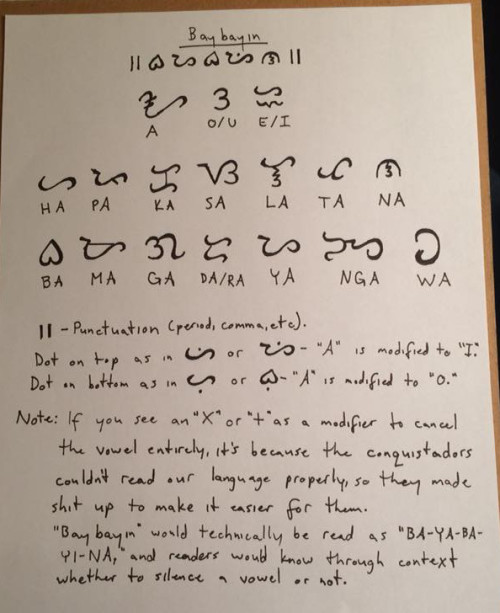 Baybayin
|| ᜊ ᜌ ᜊ ᜌᜒ ᜈ ||
ᜀ ᜂ ᜁ
A O/U E/I
ᜑ ᜉ ᜃ ᜐ ᜎ ᜆ ᜈ
HA PA KA SA LA TA NA
ᜊ ᜋ ᜄ ᜇ ᜌ ᜅ ᜏ
BA MA GA DA/RA YA NGA WA
|| - Punctuation (period, comma, etc).
Dot on top as in ᜑᜒ or ᜌᜒ - "A" is modified to "I."
Dot on bottom as in ᜑᜓ or ᜊᜓ - "A" is modified to "O."
Note: If you see an "X" or "+" as a modifier to cancel
the vowel entirely, it's because the conquistadors
couldn't read our language properly, so they made
shit up to make it easier for them.
"Baybayin" would technically be read as "BA-YA-BA-
YI-NA," and readers would know through context
whether to silence a vowel or not.